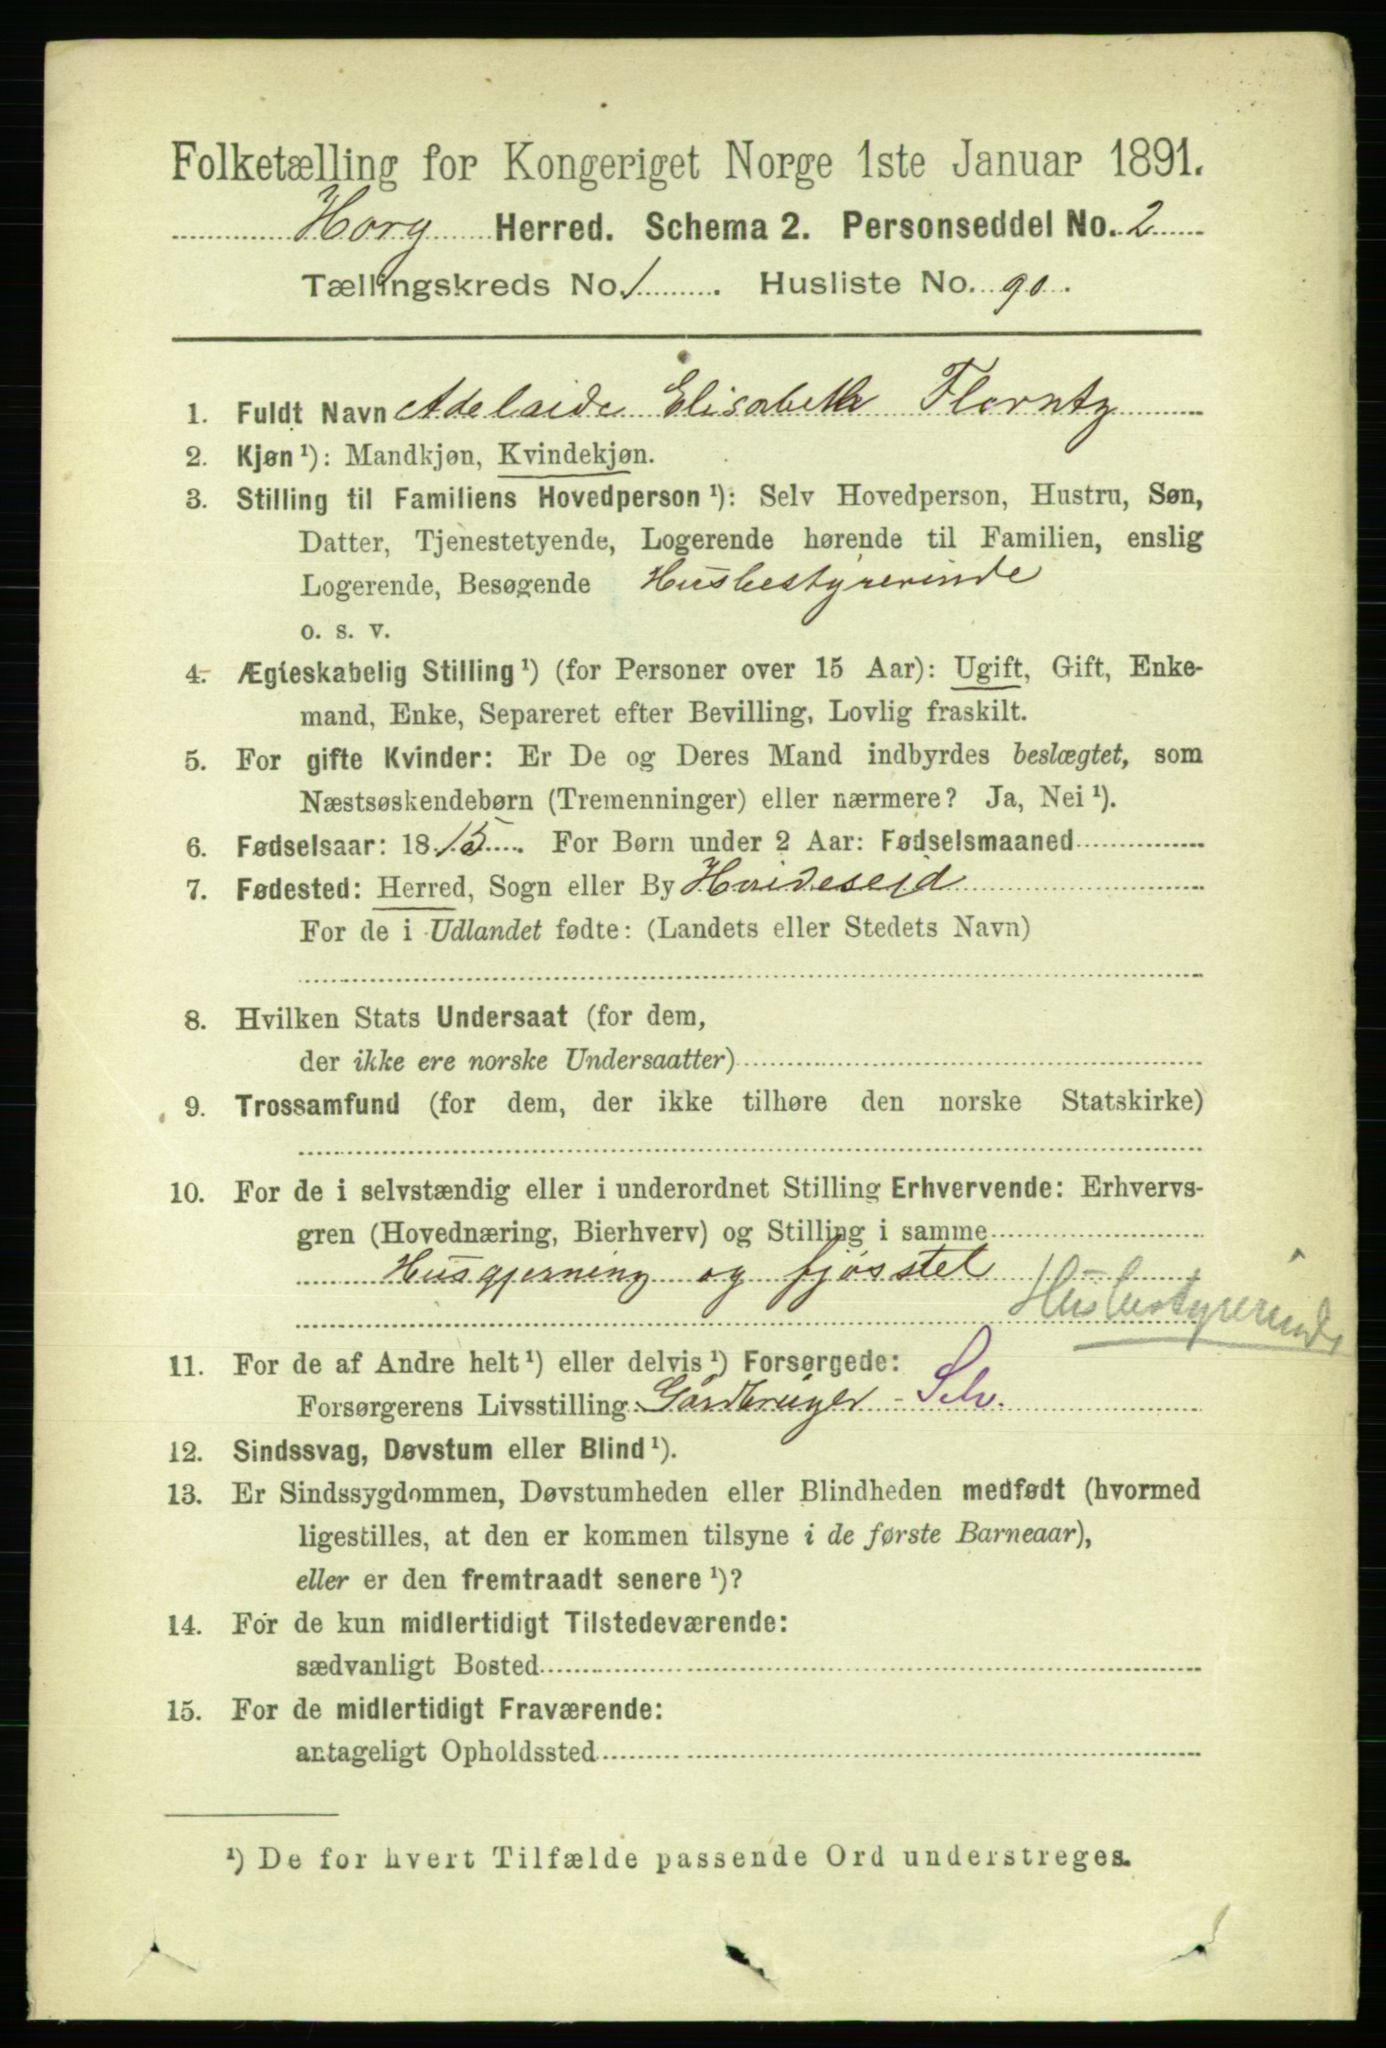 Folketælling for Kongeriget Norge 1ste Januar 1891.
Horg Herred. Schema 2. Personseddel No. 2
Tællingskreds No. 1. Husliste No. 90.
1. Fuldt Navn Adelaide Elisabeth Florntz
2. Kjøn ¹): Mandkjøn, Kvindekjøn.
3. Stilling til Familiens Hovedperson ¹): Selv Hovedperson, Hustru, Søn,
Datter, Tjenestetyende, Logerende hørende til Familien, enslig
Logerende, Besøgende Husbestyrerinde
o. s. v.
4. Ægteskabelig Stilling ¹) (for Personer over 15 Aar): Ugift, Gift, Enke-
mand, Enke, Separeret efter Bevilling, Lovlig fraskilt.
5. For gifte Kvinder: Er De og Deres Mand indbyrdes beslægtet, som
Næstsøskendebørn (Tremenninger) eller nærmere? Ja, Nei ¹).
6. Fødselsaar: 1815. For Børn under 2 Aar: Fødselsmaaned
7. Fødested: Herred, Sogn eller By Hvideseid
For de i Udlandet fødte: (Landets eller Stedets Navn)
8. Hvilken Stats Undersaat (for dem,
der ikke ere norske Undersaatter)
9. Trossamfund (for dem, der ikke tilhøre den norske Statskirke)
10. For de i selvstændig eller i underordnet Stilling Erhvervende: Erhvervs-
gren (Hovednæring, Bierhverv) og Stilling i samme
Husgjerning og fjøsstel
Husbestyrerinde
11. For de af Andre helt ¹) eller delvis ¹) Forsørgede:
Forsørgerens Livsstilling Gårdbruger - Selv.
12. Sindssvag, Døvstum eller Blind ¹).
13. Er Sindssygdommen, Døvstumheden eller Blindheden medfødt (hvormed
ligestilles, at den er kommen tilsyne i de første Barneaar),
eller er den fremtraadt senere ¹)?
14. For de kun midlertidigt Tilstedeværende:
sædvanligt Bosted
15. For de midlertidigt Fraværende:
antageligt Opholdssted
¹) De for hvert Tilfælde passende Ord understreges.